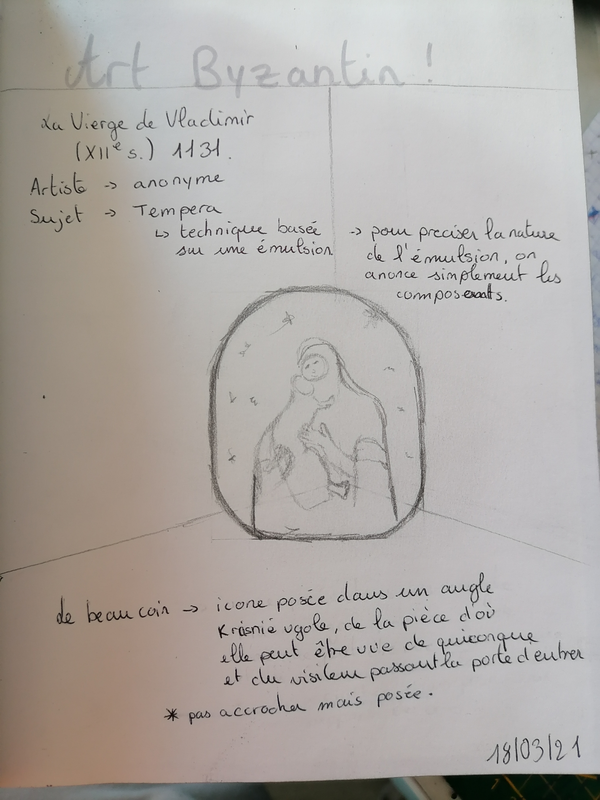 Art Byzantin !
La Vierge de Vladimir
(XIIe s.) 1131.
Artiste → anonyme
Sujet → Tempera
↳ technique basée
sur une émulsion
→ pour preciser la nature
de l'émulsion, on
anonce simplement les
composants.
de beau coin → icone posée dans un angle
Krasnié ugole, de la pièce d'où
elle peut être vue de quiconque
et du visiteur passant la porte d'entrer
* pas accrocher mais posée.
18/03/21